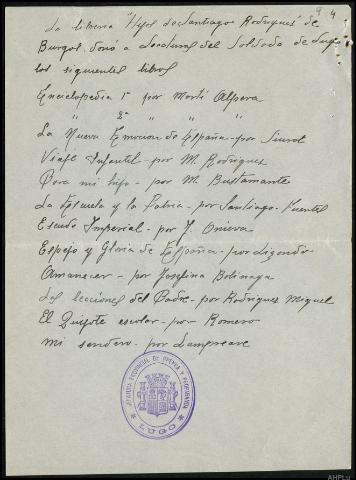 9 4
La libreria "Hijos de Santiago Rodriguez" de
Burgos donó a Lecturas del Soldado de Lugo
los siguientes libros
Enciclopedia 1º por Martí Alpera
" 2º " " "
La Nueva Emocion de España - por Siurot
Viaje Infantil - por M. Rodriguez
Para mi hijo - por M. Bustamante
La Escuela y la Patria - por Santiago Fuentes
Escudo Imperial - por J. Onieva
Espejo y Gloria de España - por Lizondo
Amanecer - por Josefina Bolinaga
Las lecciones del Padre - por Rodriguez Miguel
El Quijote escolar - por Romero
Mi sendero - por Lampreave
JEFATURA PROVINCIAL DE PRENSA Y PROPAGANDA
LUGO
AHPLu